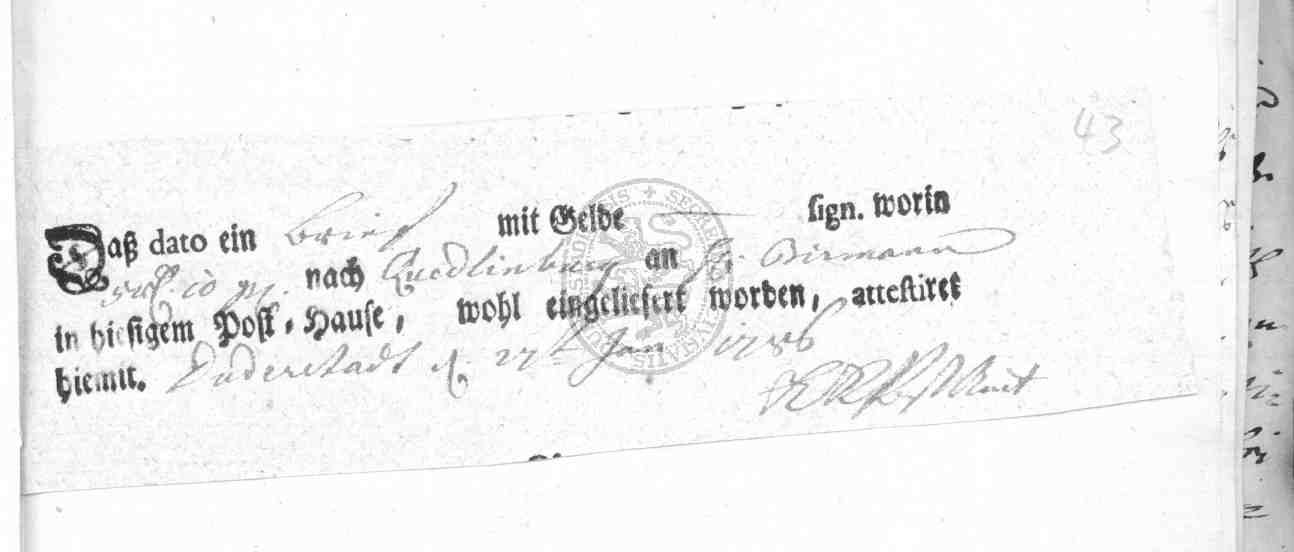 43
Daß dato ein Brief mit Gelde sign. worin
10 nach Quedlinburg an H. Birmann
in hiesigem Post-Hause, wohl eingeliefert worden, attestiret
hiemit. Duderstadt d. 27t Jan 1786